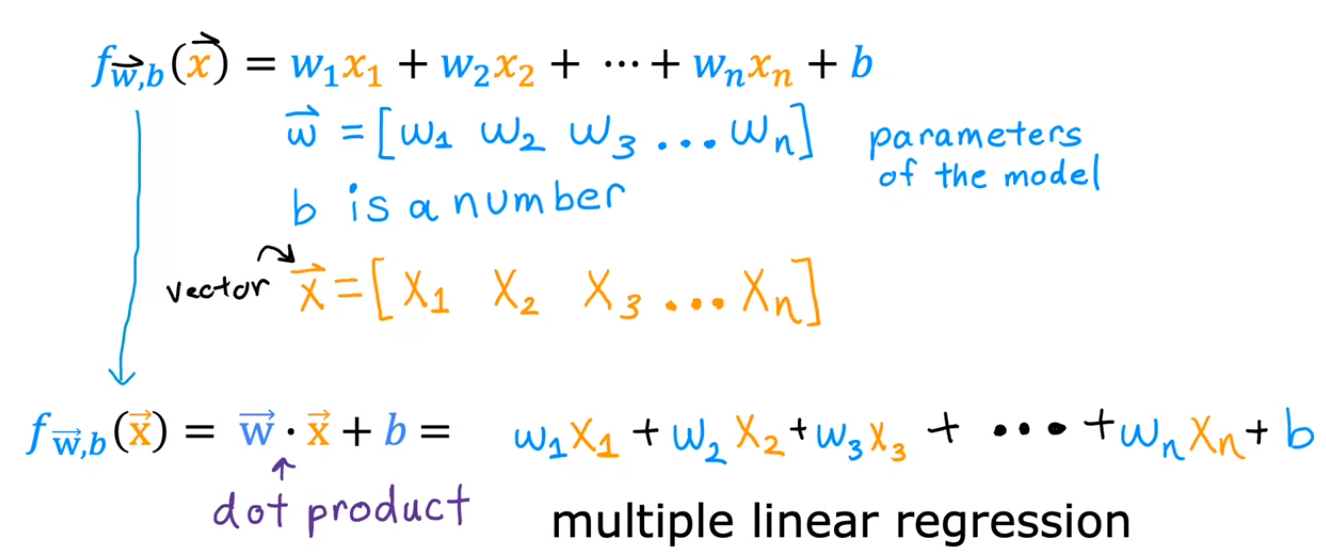 f_{w⃗,b}(x⃗) = w₁x₁ + w₂x₂ + ⋯ + wₙxₙ + b
w⃗ = [w₁ w₂ w₃ ... wₙ]
parameters
of the model
b is a number
vector x⃗ = [x₁ x₂ x₃ ... xₙ]
f_{w⃗,b}(x⃗) = w⃗ · x⃗ + b = w₁x₁ + w₂x₂ + w₃x₃ + ... + wₙxₙ + b
dot product
multiple linear regression